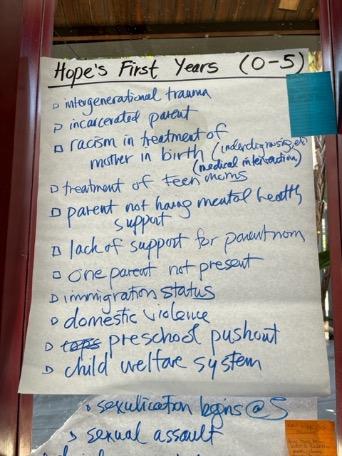 Hope's First Years (0-5)
intergenerational trauma
incarcerated parent
racism in treatment of
mother in birth (underdiagnosing, etc)
(medical interaction)
treatment of teen moms
parent not having mental health
support
lack of support for parent/mom
one parent not present
immigration status
domestic violence
preschool pushout
child welfare system
sexualization begins @ 5
sexual assault